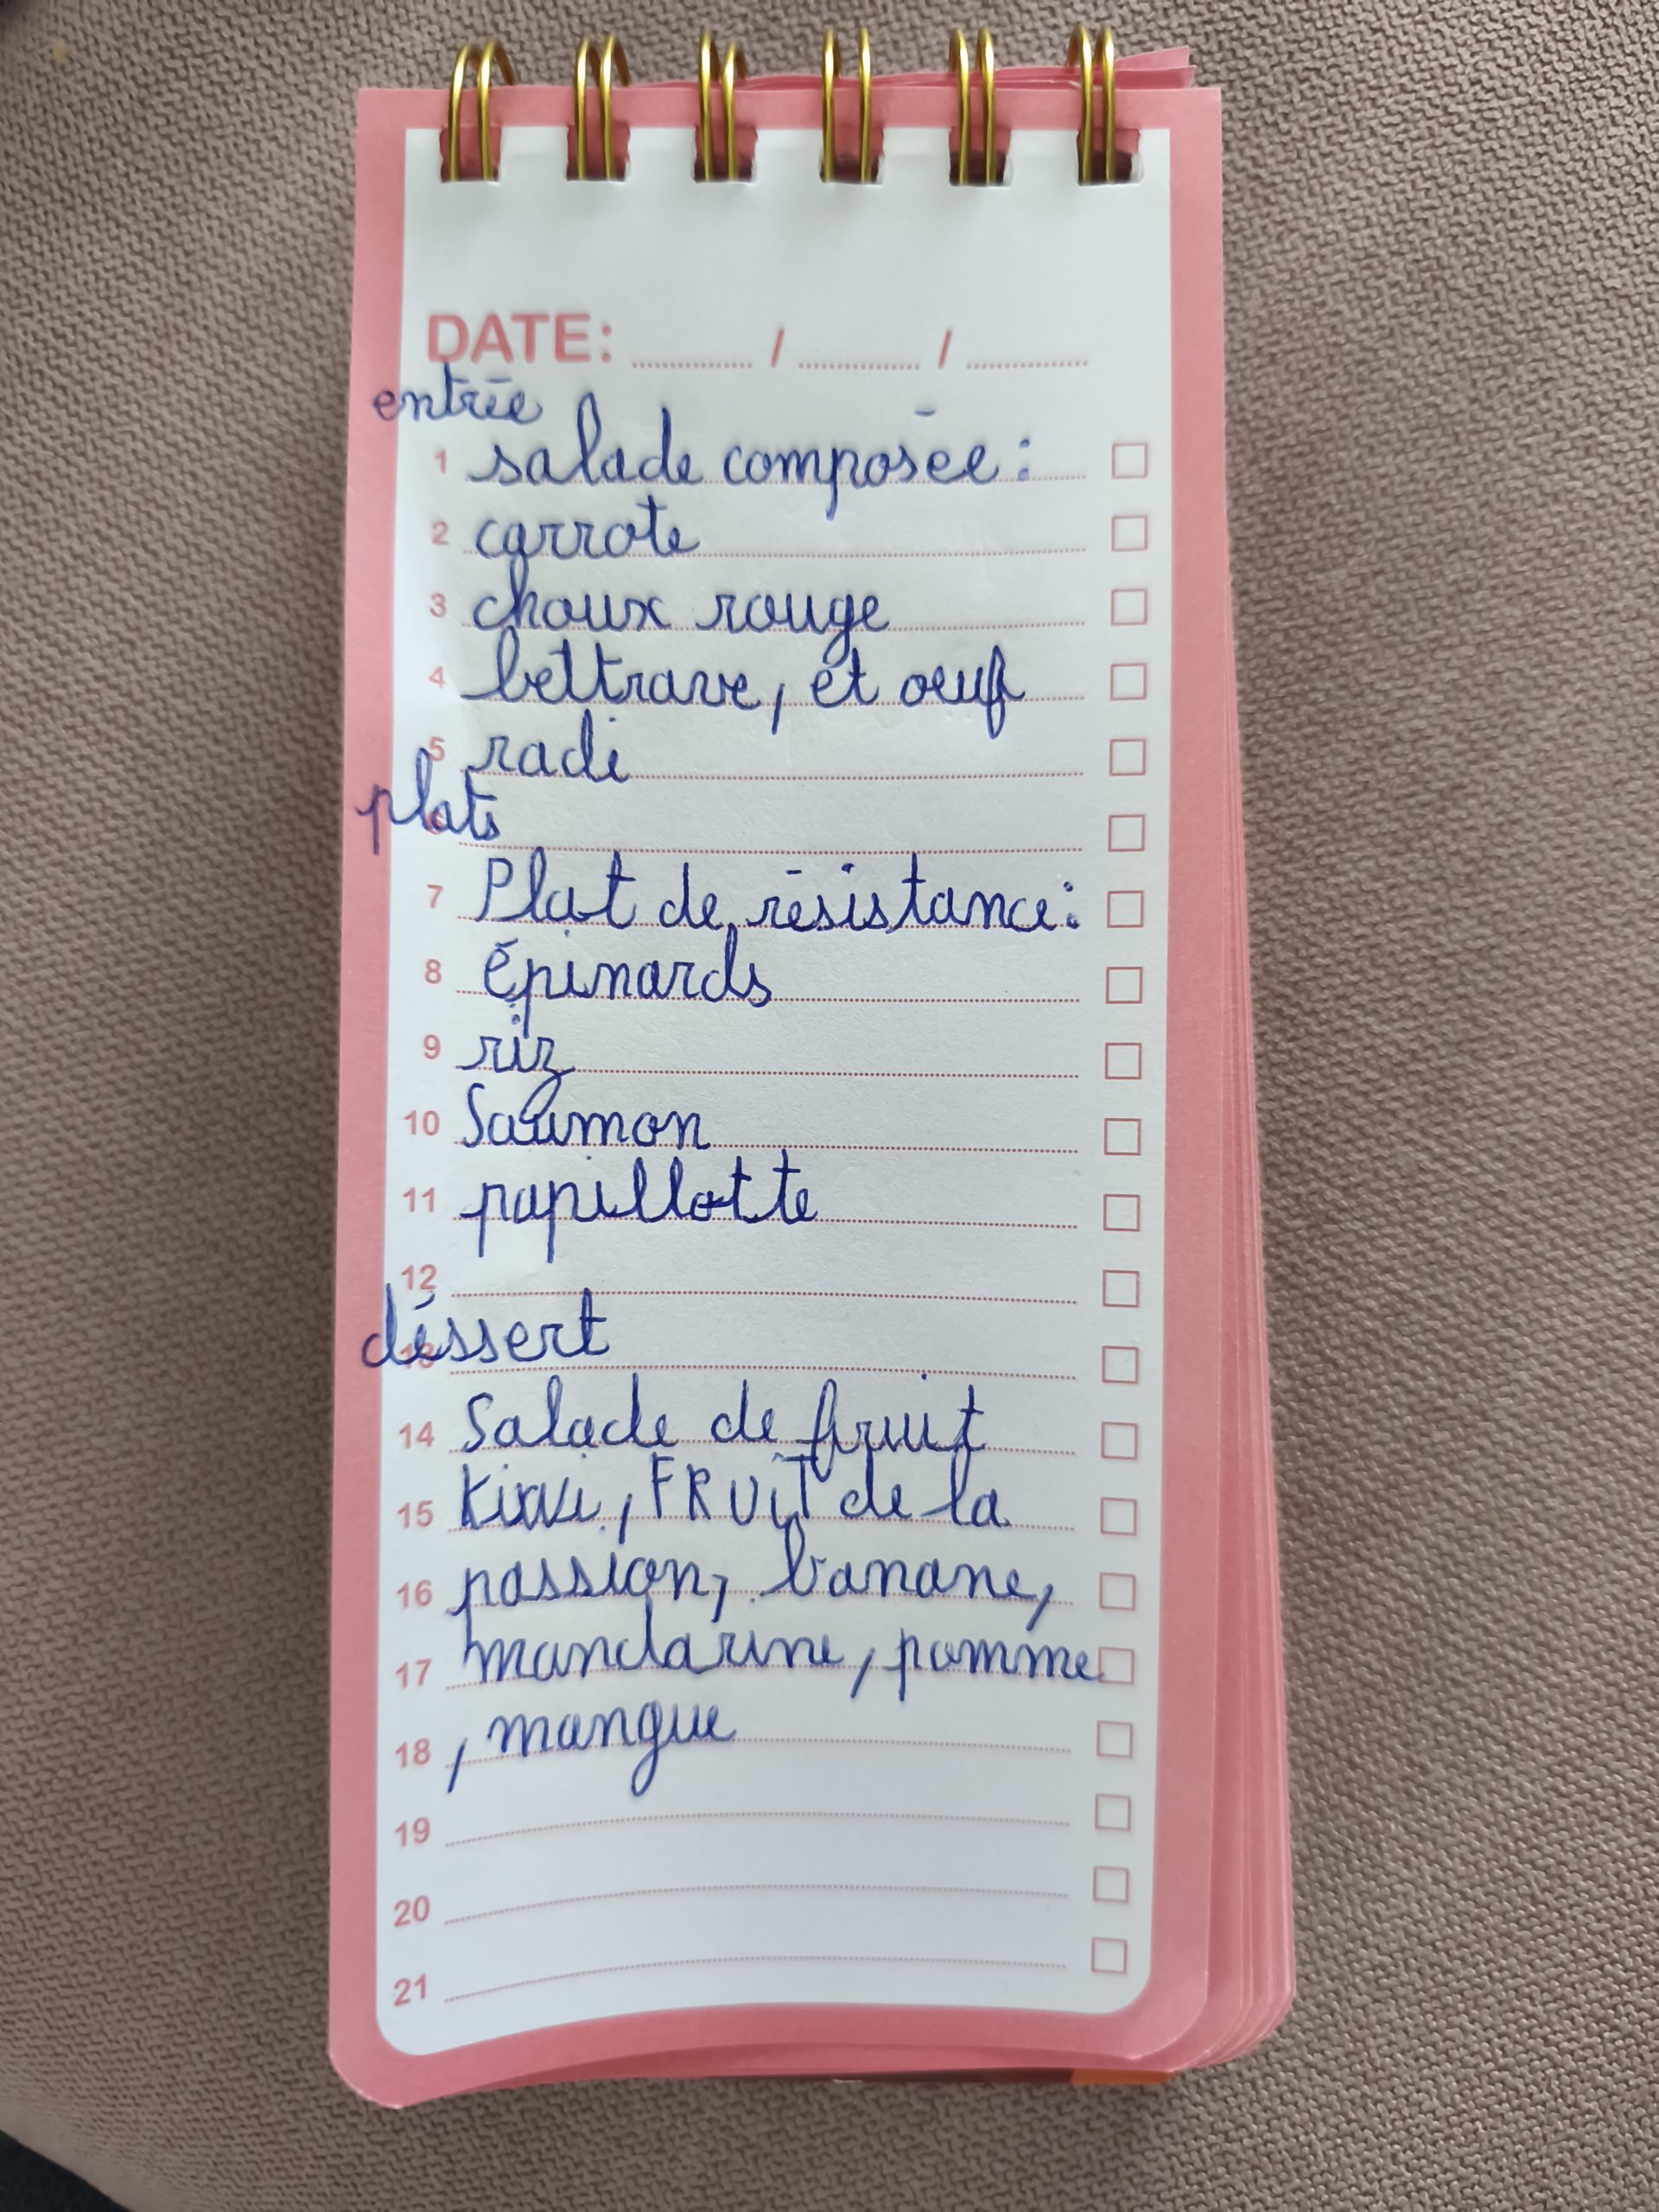 DATE: ........ / ........ / ........
entrée
1 salade composée :
2 carrote
3 choux rouge
4 bettrave, et oeuf
5 radi
plats
7 Plat de résistance :
8 Épinards
9 riz
10 Saumon
11 papillotte
12
déssert
14 Salade de fruit
15 Kiwi, FRUiT de la
16 passion, banane,
17 mandarine, pomme
18 , mangue
19
20
21